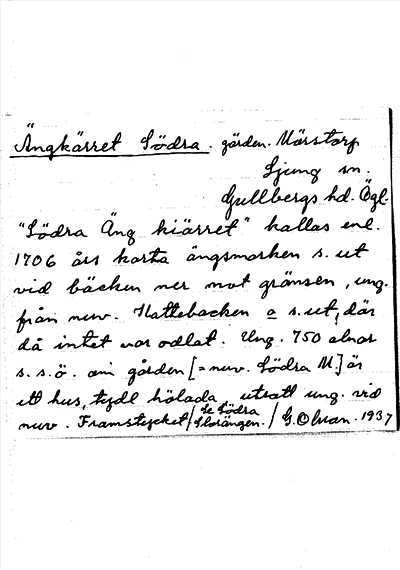 Ängkärret Södra. gården. Mårstorp
Ljung sn.
Gullbergs hd. Ögl.
"Södra Äng kiärret" kallas enl.
1706 års karta ängsmarken s. ut
vid bäcken ner mot gränsen, ung.
från nuv. Hattebacken o s. ut, där
då intet var odlat. Ung. 750 alnar
s.s.ö. om gården [= nuv. Södra M.] är
ett hus, tydl hölada, utsatt ung. vid
nuv. Framstycket / Se Södra Storängen. / G. Ohman. 1937